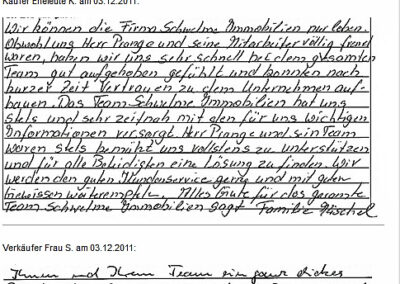 Käufer Eheleute K. am 03.12.2011:
Wir können die Firma Schwelme Immobilien nur loben.
Obwohl uns Herr Prange und seine Mitarbeiter völlig fremd
waren, haben wir uns sehr schnell bei dem gesamten
Team gut aufgehoben gefühlt und konnten nach
kurzer Zeit Vertrauen zu dem Unternehmen auf-
bauen. Das Team Schwelme Immobilien hat uns
stets und sehr zeitnah mit den für uns wichtigen
Informationen versorgt. Herr Prange und sein Team
waren stets bemüht uns vollstens zu unterstützen
und für alle Beteiligten eine Lösung zu finden. Wir
werden den guten Kundenservice gerne und mit guten
Gewissen weiterempfeh. Alles Gute für das gesamte
Team Schwelme Immobilien sagt Familie
Verkäufer Frau S. am 03.12.2011:
Ihnen und Ihrem Team ein ganz dickes